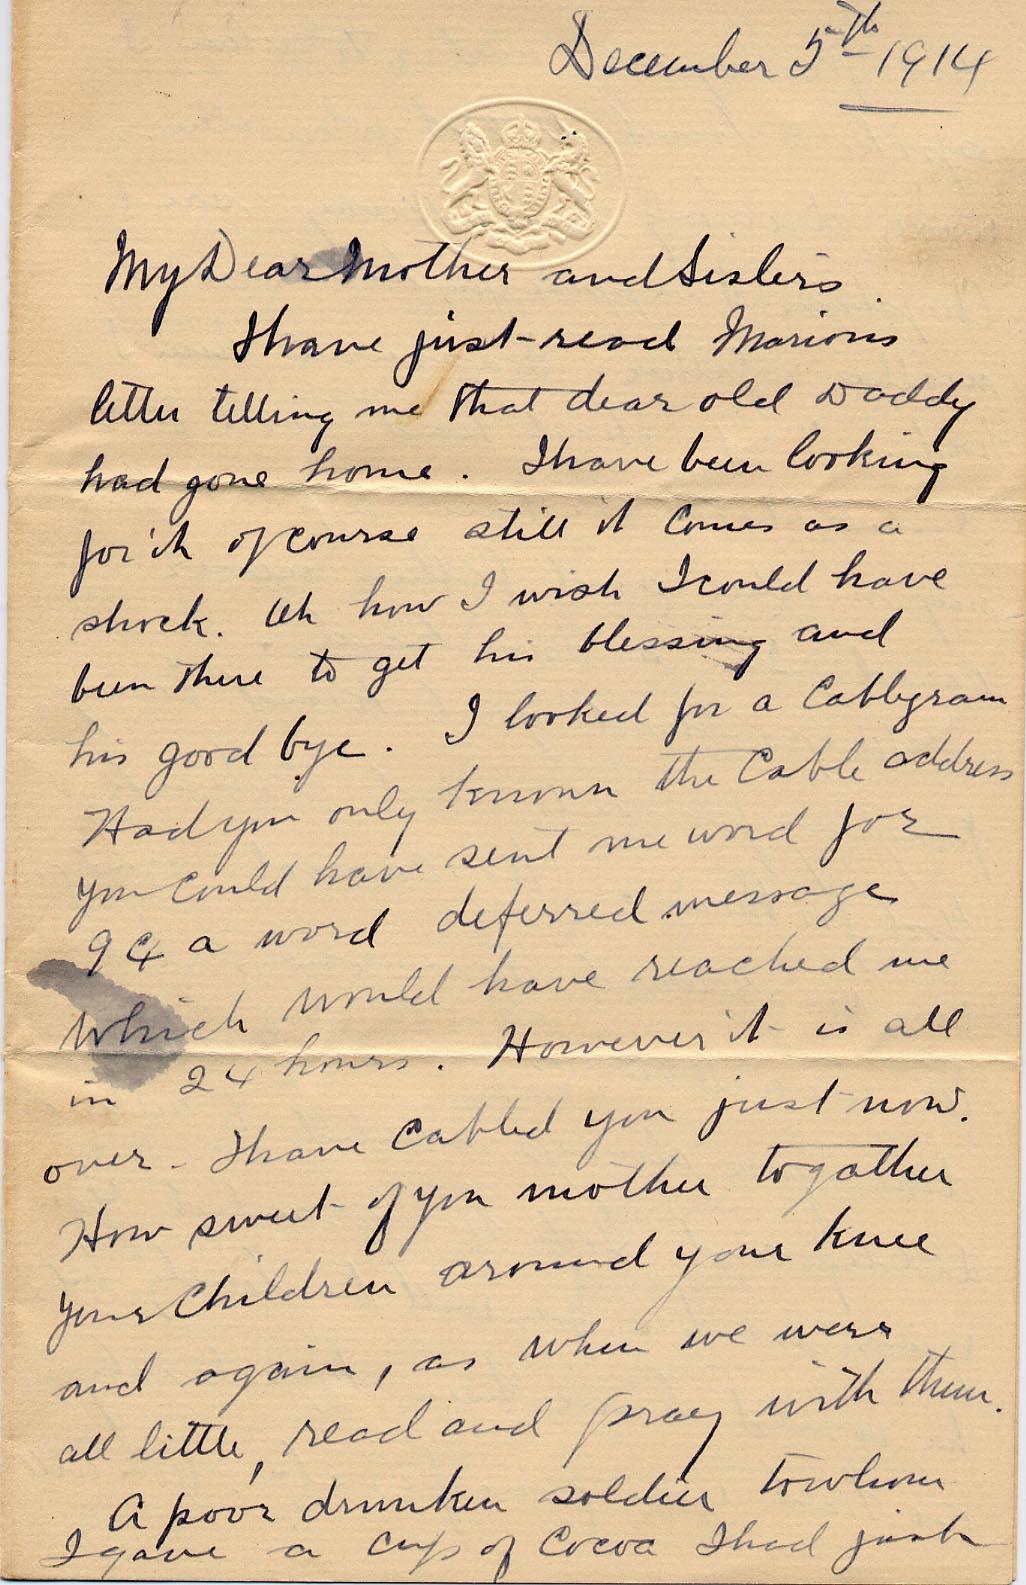 December 5th 1914
My Dear Mother and Sisters.
I have just read Marions
letter telling me that dear old Daddy
had gone home. I have been looking
for it of course still it comes as a
shock. Oh how I wish I could have
been there to get his blessing and
his good bye. I looked for a Cablegram
Had you only known the Cable address
you could have sent me word for
9¢ a word deferred message
which would have reached me
in 24 hours. However it is all
over - I have Cabled you just now.
How sweet of you mother to gather
your Children around your knee
and again, as when we were
all little, read and pray with them.
A poor drunken soldier to whom
I gave a cup of Cocoa I had just